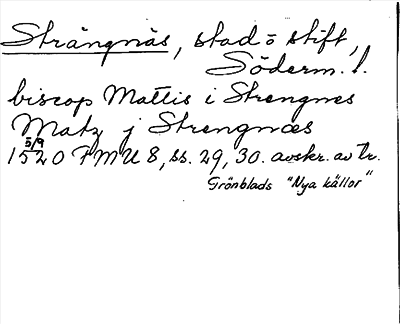 Strängnäs, stad o stift,
Söderm. l.
biscop Mattis i Strengnes
Matz j Strengnæs
5/9
1520 FMU 8, ss. 29, 30. avskr. av tr.
Grönblads "Nya källor"